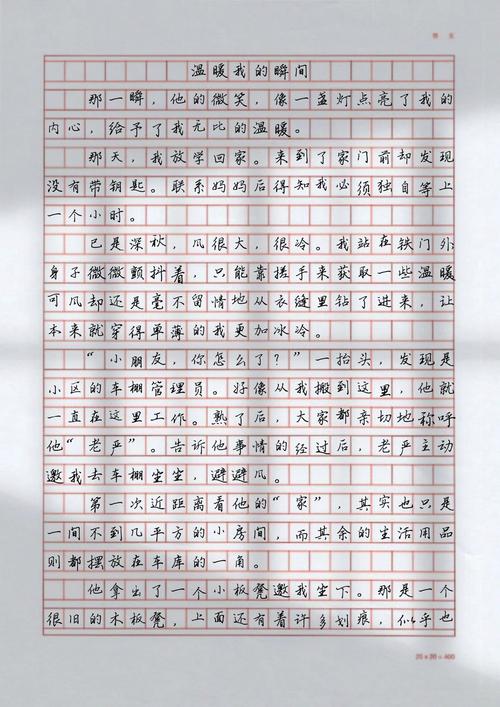 温暖我的瞬间
那一瞬，他的微笑，像一盏灯点亮了我的
内心，给予了我无比的温暖。
那天，我放学回家。来到了家门前却发现
没有带钥匙。联系妈妈后得知我必须独自等上
一个小时。
已是深秋，风很大，很冷。我站在铁门外
身子微微颤抖着，只能靠搓手来获取一些温暖
可风却还是毫不留情地从衣缝里钻了进来，让
本来就穿得单薄的我更加冰冷。
“小朋友，你怎么了？”一抬头，发现是
小区的车棚管理员。好像从我搬到这里，他就
一直在这里工作。熟了后，大家都亲切地称呼
他“老严”。告诉他事情的经过后，老严主动
邀我去车棚坐坐，避避风。
第一次近距离看他的“家”，其实也只是
一间不到几平方的小房间，而其余的生活用品
则都摆放在车库的一角。
他拿出了一个小板凳邀我坐下。那是一个
很旧的木板凳，上面还有着许多划痕，似乎也
20×20=400